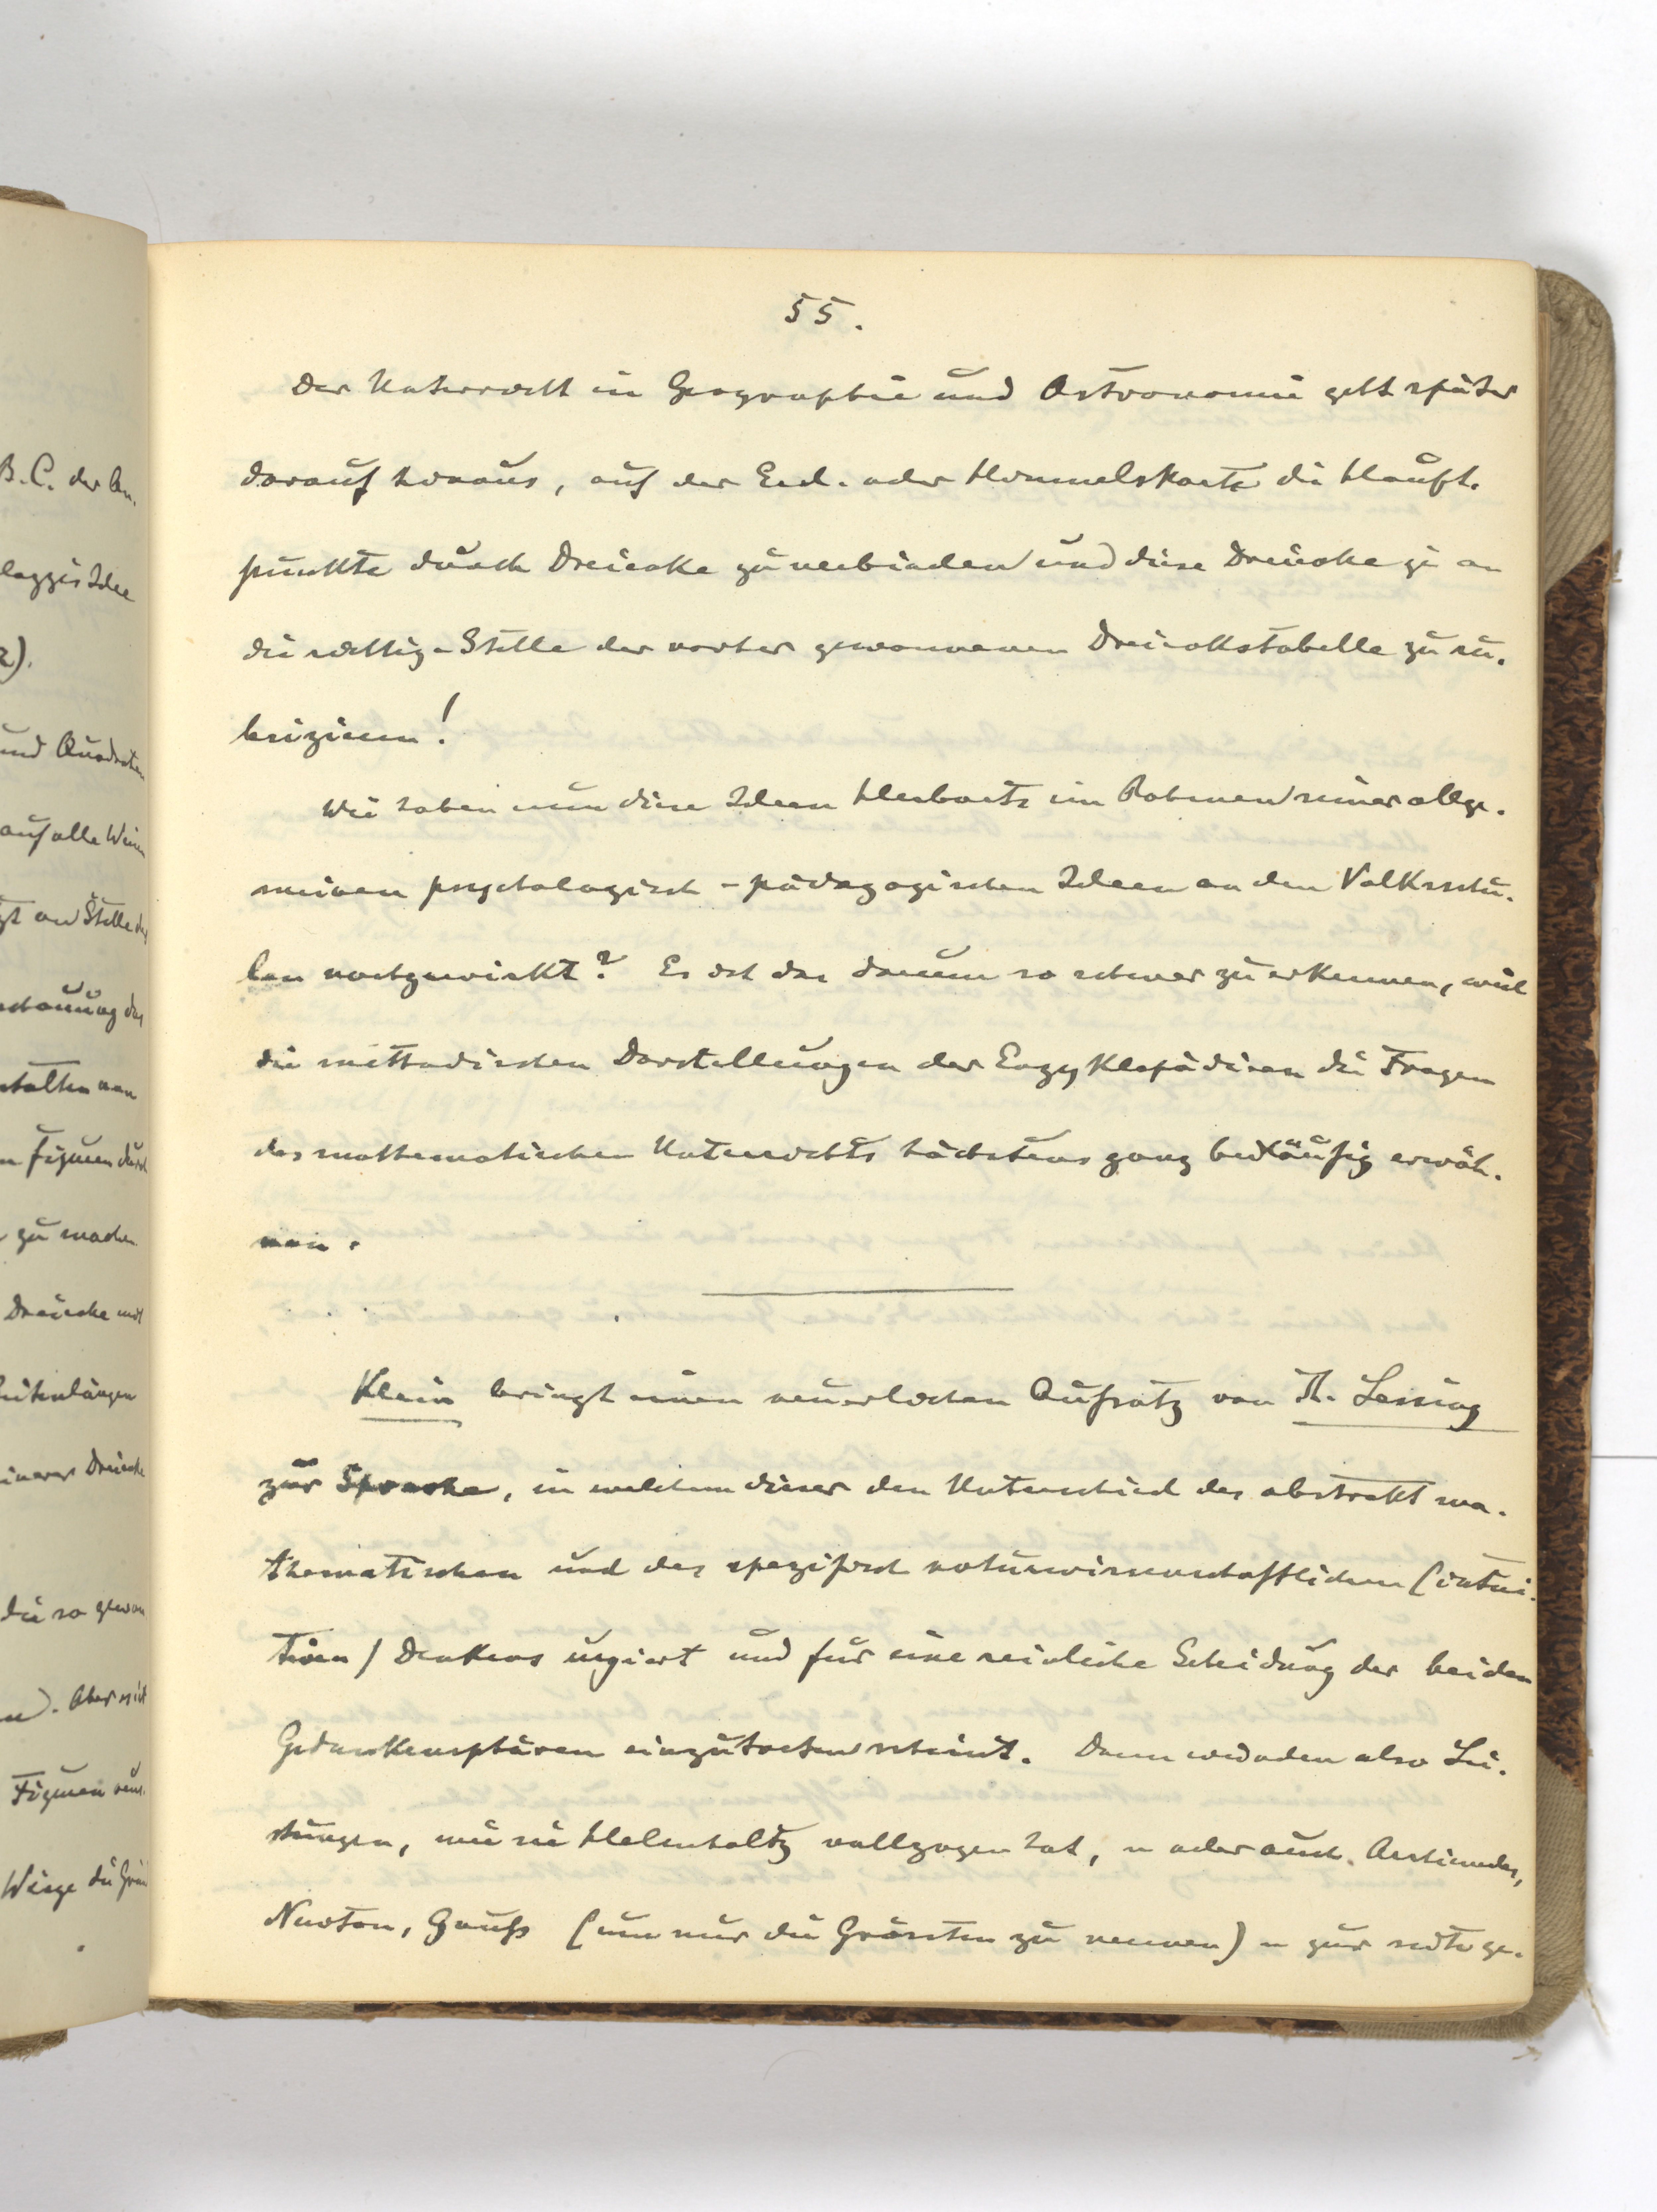 55.
Der Unterricht in Geographie und Astronomie geht später
darauf hinaus, auf der Erd- oder Himmelskarte die Haupt-
punkte durch Dreiecke zu verbinden und diese Dreiecke je an
die richtige Stelle der vorher gewonnenen Dreieckstabelle zu ru-
brizieren!
Wie haben nun diese Ideen Herbarts im Rahmen seiner allge-
meinen psychologisch-pädagogischen Ideen an den Volksschu-
len nachgewirkt? Es ist das darum so schwer zu erkennen, weil
die methodischen Darstellungen der Enzyklopädieen die Fragen
des mathematischen Unterrichts höchstens ganz beiläufig erwäh-
nen.
Klein bringt einen neuerlichen Aufsatz von Th. Lessing
zur Sprache, in welchem dieser den Unterschied des abstrakt ma-
thematischen und des spezifisch naturwissenschaftlichen (intui-
tiven) Denkens urgiert und für eine reinliche Scheidung der beiden
Gedankensphären einzutreten scheint. Dann würden also Lei-
stungen, wie sie Helmholtz vollzogen hat, – oder auch Archimedes,
Newton, Gauß (um nur die Grössten zu nennen) – zur Seite ge-
B. C. der An-
Idee
2).
und Quadraten
auf alle Weisen
an Stelle des
schauung des
stalten von
n Figuren durch
zu machen
Dreiecke mit
Seitenlängen
Dreiecke
die so gewon
n). Aber nicht
Figuren
Wiege die